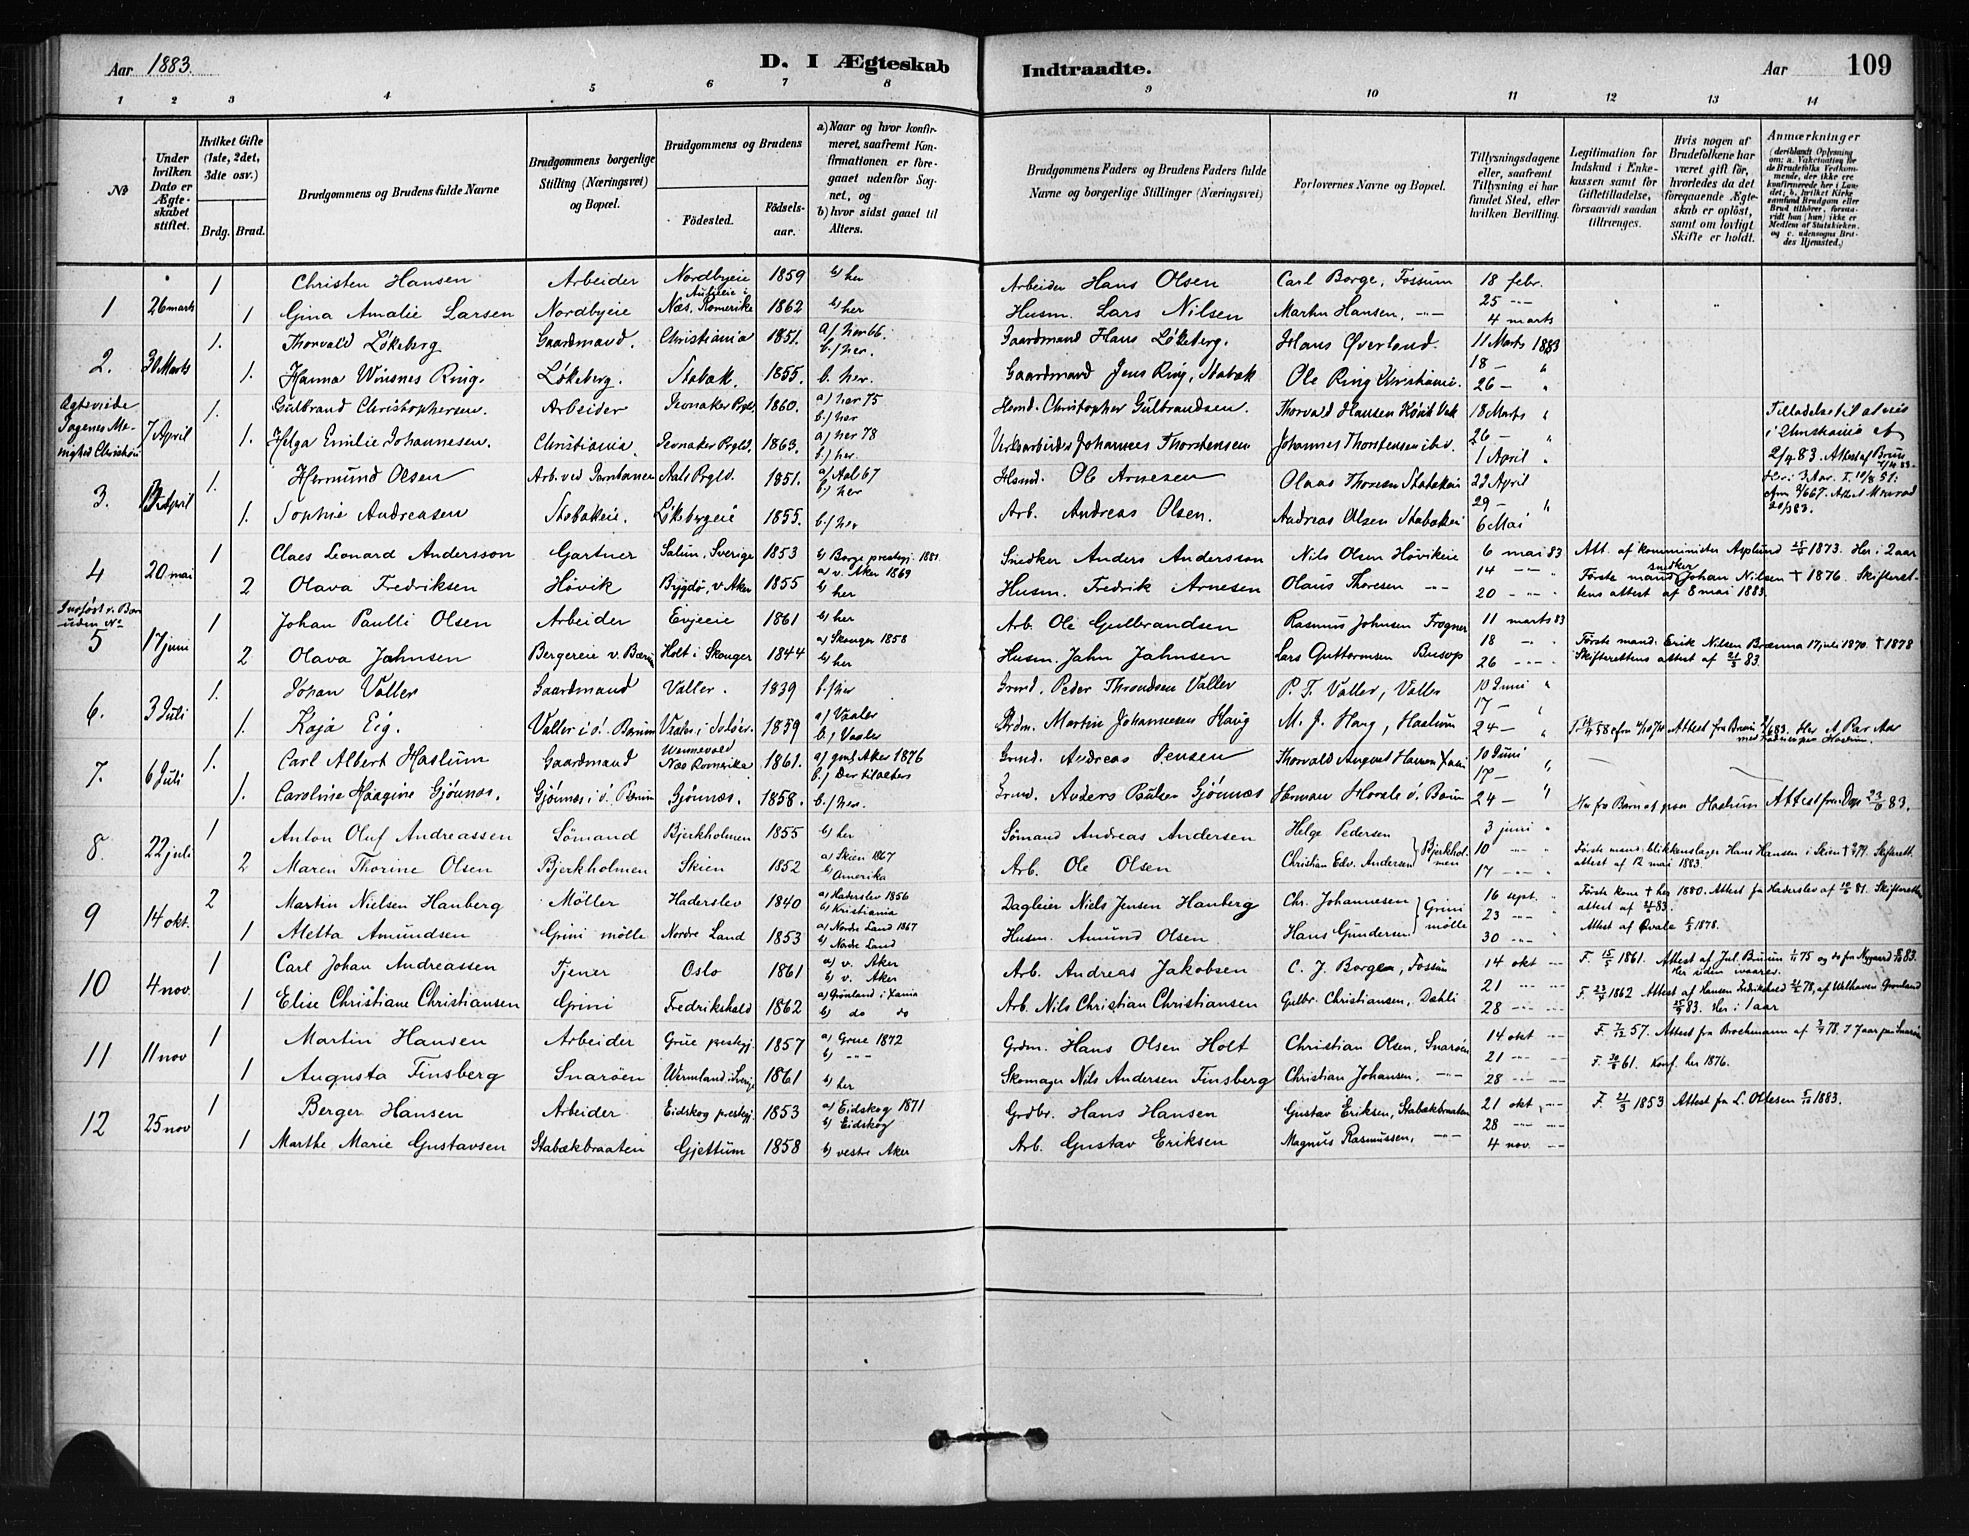 Aar 1883.
D. I Ægteskab Indtraadte.
Aar 109
1 2 3 4 5 6 7 8 9 10 11 12 13 14
No
Under hvilken Dato er Ægteskabet stiftet.
Hvilket Gifte (1ste, 2det, 3die osv.)
Brdg. Brud.
Brudgommens og Brudens fulde Navne
Brudgommens borgerlige Stilling (Næringsvei) og Bopæl.
Brudgommens og Brudens
Födested. Födselsaar.
a) Naar og hvor konfirmeret, saafremt Konfirmationen er foregaaet udenfor Sognet, og
b) hvor sidst gaaet til Alters.
Brudgommens Faders og Brudens Faders fulde Navne og borgerlige Stillinger (Næringsvei)
Forlovernes Navne og Bopæl.
Tillysningsdagene eller, saafremt Tillysning ei har fundet Sted, efter hvilken Bevilling.
Legitimation for Indskud i Enkekassen samt for Giftetilladelse, forsaavidt saadan tiltrænges.
Hvis nogen af Brudefolkene har været gift för, hvorledes da det foregaaende Ægteskab er oplöst, samt om lovligt Skifte er holdt.
Anmærkninger (deriblandt Oplysning om: a. Vakcination for de Brudefolks Vedkommende, der ikke ere konfirmerede her i Landet; b. hvilket Kirkesamfund Brudgom eller Brud tilhörer, forsaavidt han (hun) ikke er Medlem af Statskirken, og c. udensogns Brudes Hjemsted.)
1 Christen Hansen Arbeider Nordbyeie 1859 b) her Arbeider Hans Olsen Carl Borge, Fossum 18 febr.
1 26 marts 1 Gina Amalie Larsen Nordbyeie Næs, Romerike 1862 b) her Husm. Lars Nilsen Martin Hansen, -"- 25 -"-
4 marts
1. Thorvald Løkeberg Gaardmand. Christiania 1851. a) her 66. b.) her. Gaardmand Hans Løkeberg. Hans Øverland. 11 Marts 1883
2. 30 Marts 1. Hanna Ring. Løkeberg. Stabæk. 1855. b. her. Gaardmand Jens Ring, Stabæk Ole Ring Christiania. 18 - "
26 - "
1. Gulbrand Christophersen. Arbeider 1860. a) her 75 b.) her Hsmd. Christopher Gulbrandsen. Thorvald Hansen 18 Marts "
7 April 1. Helga Emilie Johannesen. Christiania. 1863. a) her 78 b.) her. Johannes Thorstensen Johannes Thorstensen ibd. 26 - "
1 April "
Tilladelse til at vies i Christiania af 2/4 83. Attest af
1. Hermund Olsen Arb. ved Aals Prgld. 1851. a) Aal 67 b) her Hsmd. Ole Arnesen Olaus Thoresen Stabækei 22 April
3. April 1. Sophie Andreasen Stabækeie. Løkebergeie 1855. b.) her Arb. Andreas Olsen. Andreas Olsen Stabækei 29 - "
6 Mai
1 Claes Leonard Andersson Gartner Sverige 1853 b) Borge prestegj. 1881. Snedker Anders Andersson Nils Olsen Høvikeie 6 mai 83 Att. af komminister Asplund 1873. Her i 2 aar
4 20 mai 2 Olava Fredriksen Høvik Bygdø, v. Aker 1855 a) v. Aker 1869 b) her Husm. Fredrik Arnesen Olaus Thoresen -"- 14 -"-
20 -"-
Første mand snedker Johan Nilsen † 1876. Skifterettens attest af 8 mai 1883.
1 Johan Paulli Olsen Arbeider Evjeeie 1861 b) her Arb. Ole Gulbrandsen Rasmus Johnsen Frogner 11 marts 83
5 17 juni 2 Olava Jahnsen Bergereie v. Bærum Holt i Skouger 1844 a) Skouger 1858 b) her Husm. Jahn Jahnsen Lars Guttormsen Busop 18 "
26 -"-
Første mand: Erik Nilsen Brænna 17 juli 1870. † 1878 Skifterettens attest af 21/3 83.
1. Johan Valler Gaardmand Valler. 1839 b.) her Grmd. Peder Throndsen Valler P. T. Valler, Valler 10 Juni "
6. 3 Juli 1. Kaja Eig. Valler i ø. Bærum Vaaler i Solør. 1839 a) Vaaler b.) Vaaler Martin Johannesen Haug M. J. Haug, Haslum 17 - "
24 - "
1. Carl Albert Haslum Gaardmand Næs Romerike 1861. a) Aker 1876 Grmd. Andreas Jensen Thorvald August Hansen Xania 10 Juni "
7. 6 Juli 1. Caroline Haagine Gjønnæs. Gjønnæs i ø. Bærum Gjønnæs. 1858. b.) her. Grmd. Anders Paulsen Gjønnæs Herman Horsle ø. Bærum 17 - "
24 - "
Her fra Barn af paa Haslum Attest fra Døp 23/6 83.
1 Anton Oluf Andreassen Sømand Bjerkholmen 1855 b) her Sømand Andreas Andersen Helge Pedersen 3 juni "
8. 22 juli 2 Maren Thorine Olsen Bjerkholmen Skien 1852 a) Skien 1867 b) Amerika Arb. Ole Olsen Christian Edv. Andersen } Bjerkholmen 10 -"-
17 -"-
Første mand: blikkenslager Hans Hansen i Skien † Skifterett. attest af 12 mai 1883.
2 Martin Nielsen Hanberg Møller Haderslev 1840 a) Haderslev 1856 b) Kristiania Dagleier Niels Jensen Hanberg Chr. Johannesen 16 sept. "
9 14 okt. 1 Aletta Amundsen Grini mølle Nordre Land 1853 a) Nordre Land 1867 b) Nordre Land Husm. Amund Olsen Hans Gundersen } Grini mølle 23 -"-
30 -"-
Første kone † her 1880. Attest fra Haderslev af 81. Skifterettens attest af 83.
Attest af Qvale 1878.
1 Carl Johan Andreassen Tjener Oslo 1861 a) v. Aker b) v. Aker Arb. Andreas Jakobsen C. J. Borgen, Fossum 14 okt -"-
10 4 nov. 1 Elise Christiane Christiansen Grini Fredrikshald 1862 a) Grønland i Xania b) do do Arb. Nils Christian Christiansen Gulbr. Christiansen, Dæhli 21 -"-
28 -"-
F. 15/5 1861. Attest af Jul. Bruun 75 og do fra Nygaard 83. Her siden
F. 1862 Attest af Hansen Fredrikshald 78, af Welhaven Grønland 83. Her i 1 aar
1 Martin Hansen Arbeider Grue prestegj. 1857 a) Grue 1872 b) -"- Grdm. Hans Olsen Holt Christian Olsen, Snarøen 14 okt -"-
11 11 nov 1 Augusta Finsberg Snarøen Wermland i Sverige 1861 b) her Skomager Nils Andersen Finsberg Christian Johansen. -"- 21 -"-
28 -"-
F. 7/12 57. Attest fra Brochmann af 78. I 7 aar paa Snarøen
F. 61. Konf. her 1876.
1 Berger Hansen Arbeider Eidskog prestegj. 1853 a) Eidskog 1871 b) Eidskog Grdbr. Hans Hansen Gustav Eriksen, Stabækbraaten 21 okt. -"-
12 25 nov 1 Marthe Marie Gustavsen Stabækbraaten Gjettum 1858 b) vestre Aker Arb. Gustav Eriksen Magnus Rasmussen, -"- 28 -"-
4 nov. -"-
F. 21/3 1853 Attest fra L. Oftesen 5/10 1883.